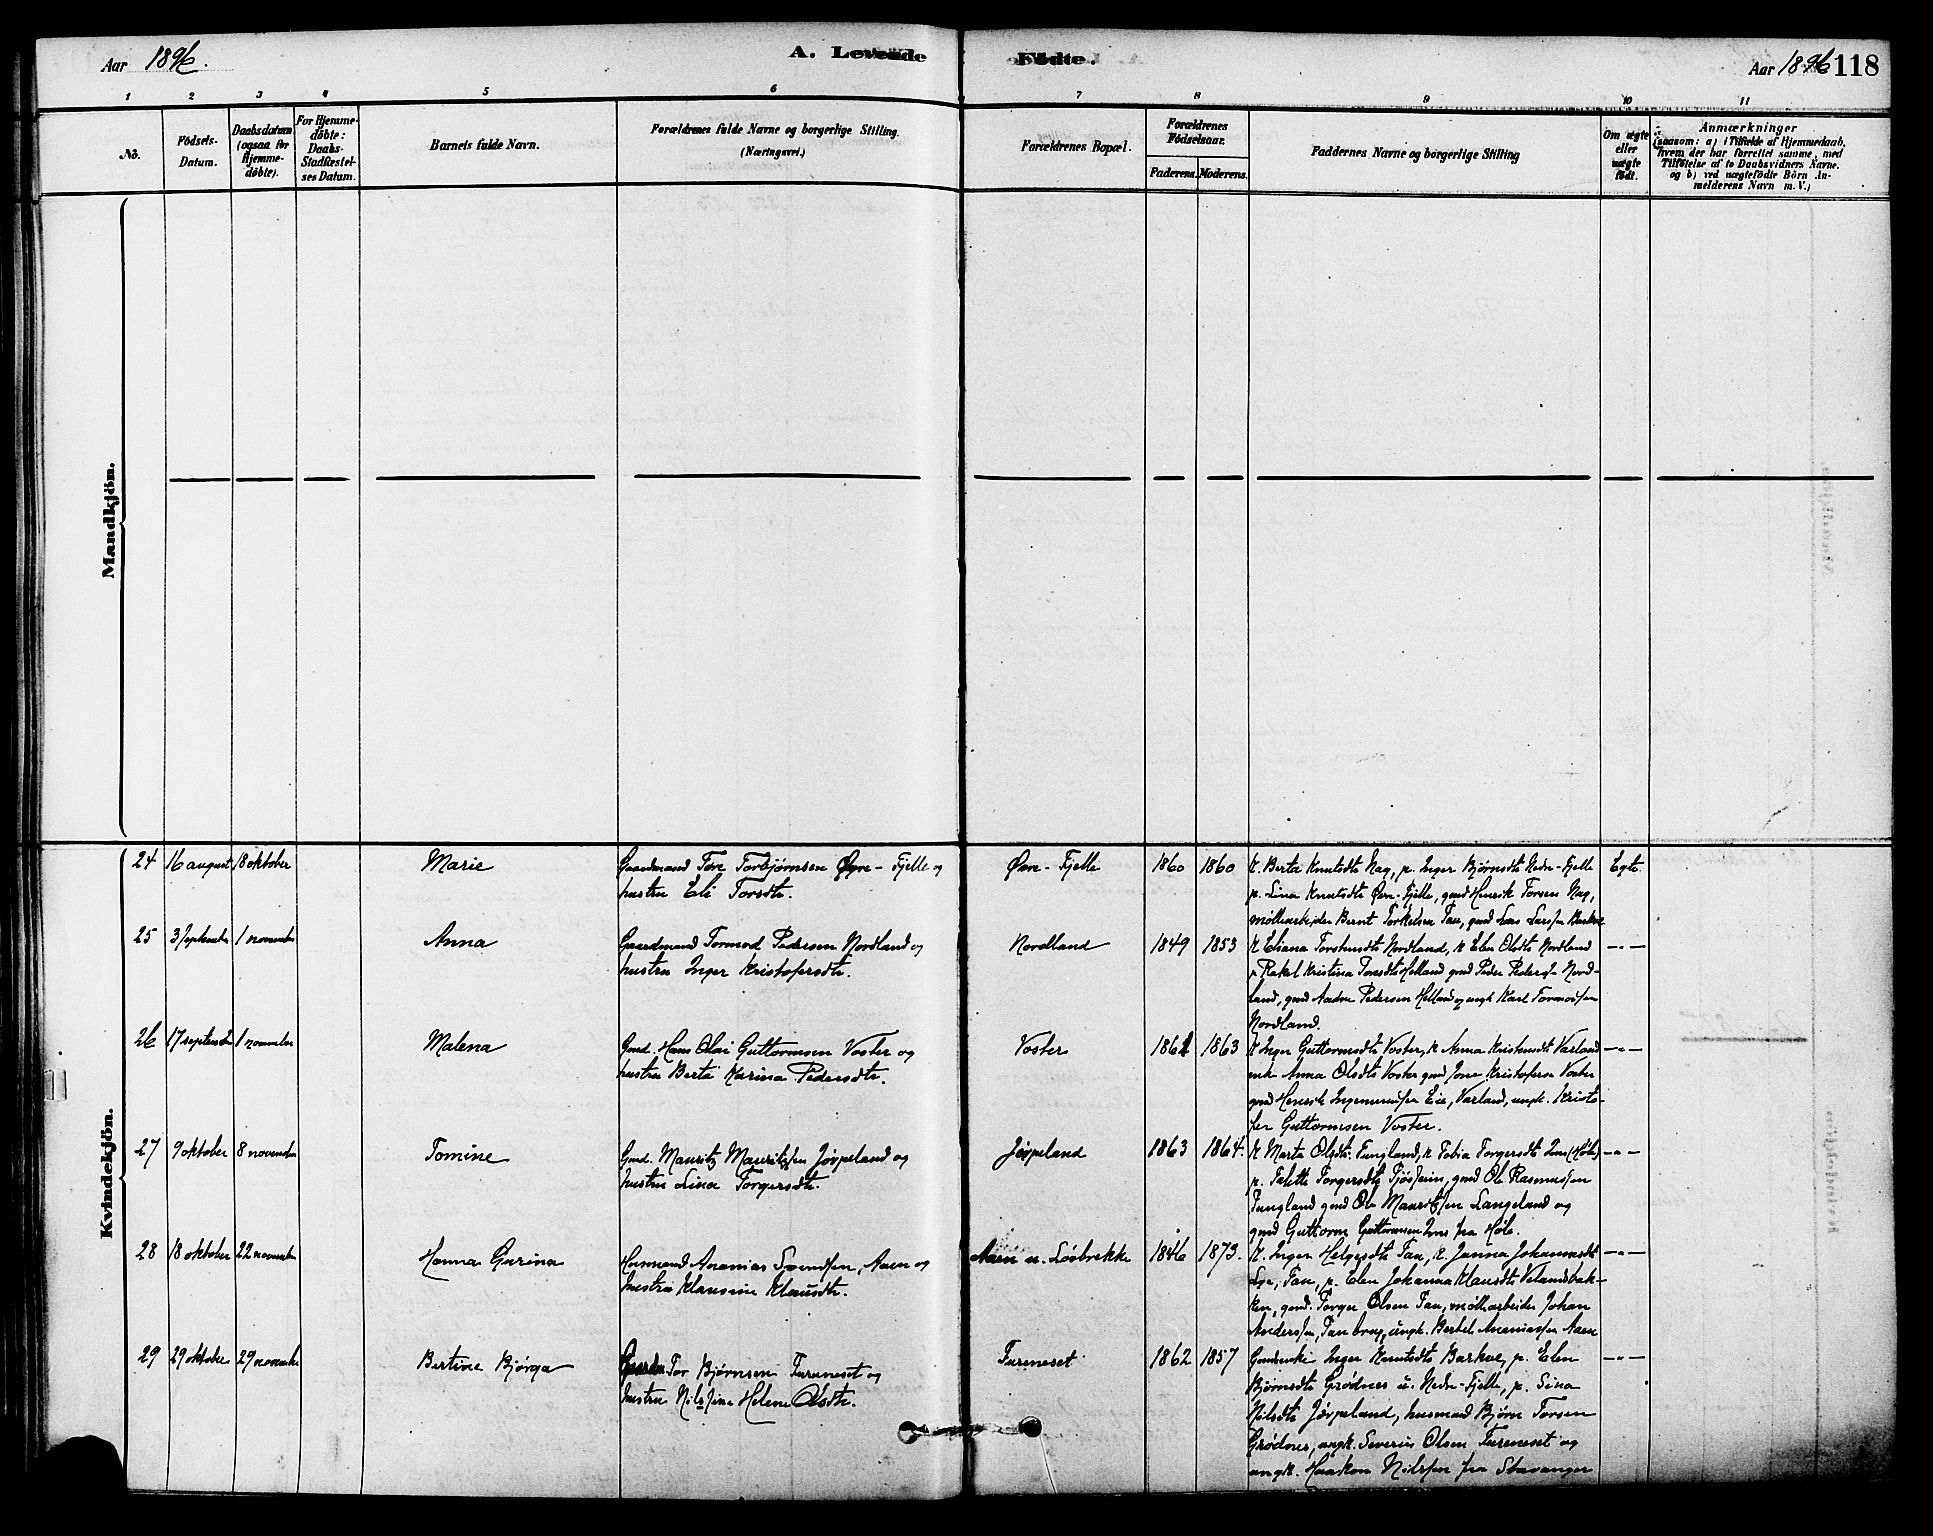 Aar 1896. A. Levende Födte. Aar 1896 118
1 2 3 4 5 6 7 8 9 10 11
No.
Födsels-Datum.
Daabsdatum (ogsaa for Hjemme-döbte).
For Hjemme-döbte: Daabs-Stadfæstel-ses Datum.
Barnets fulde Navn.
Forældrenes fulde Navne og borgerlige Stilling.
(Næringsvei.)
Forældrenes Bopæl.
Forældrenes Födselsaar.
Faderens. Moderens.
Faddernes Navne og borgerlige Stilling
Om ægte eller uægte födt.
Anmærkninger
(saasom: a) i Tilfælde af Hjemmedaab,
hvem der har forrettet samme, med
Tilföielse af to Daabsvidners Navne.
og b) ved uægtefödte Börn An-
melderens Navn m. V.)
Mandkjön.
Kvindekjön.
24 16 august 18 oktober Marie Gaardmand Tore Torbjørnsen Øvre-Fjelle og
hustru Eli Torsdtr.
Øvre-Fjelle 1860 1860
K. Berta Knutsdtr Nag, p. Inger Bjørnsdtr Nedre-Fjelle
p. Lina Knutsdtr Øvre-Fjelle, gmd Henrik Torsen Nag,
møllearbeider Bernt Torkelsen Tau, gmd Lars Larssen Barkve
Egte.
25 3 september 1 november Anna Gaardmand Tormod Pedersen Nordland og
hustru Inger Kristofersdtr.
Nordland 1849 1853
K Eliana Nordland, K Elen Olsdtr Nordland
p Rakel Kristina Helland gmd Peder Pedersen Nord-
land, gmd Andre Pedersen Helland og ungk Karl Tormodsen
Nordland.
-"-
26 17 september 1 november Malena Gmd. Hans Olai Guttormsen Voster og
hustru Berta Karina Pedersdtr.
Voster 1861 1863
K Inger Guttormsdtr Voster, K Anna Varland
enk Anna Olsdtr Voster gmd Jone Kristofersen Voster
gmd Henrik Eie, Varland, ungk. Kristo-
fer Guttormsen Voster.
-"-
27 9 oktober 8 november Tomine Gmd. Mauritz Mauritzsen Jørpeland og
hustru Lina Torgersdtr.
Jørpeland 1863 1864.
K Marta Olsdtr. Tungland, K Tobia Torgersdtr (Høle)
p. Torgersdtr Fjøsheim, gmd Ole Rasmussen
Tungland gmd Ole Mauritzsen Langeland og
gmd Guttorm Guttormsen fra Høle.
-"-
28 18 oktober 22 november Hanna Gurina Husmand Ananias Svendsen, Aaen og
hustru Klausine Klausdtr.
Aaen u. Løibrekke 1846 1873.
K. Inger Helgesdtr Tau, K. Janna Johannesdtr
Tau, p. Elen Johanna Klausdtr Velandsbak-
ken, gmd. Torger Olsen Tau, møllearbeider Johan
Anderssen, Tau brug, ungk. Bertel Ananiassen Aaen
-"-
29 29 oktober 29 november Bertine Bjørga Tor Bjørnsen Furneset og
hustru Nilssine Helene Olsdtr.
Fureneset 1862 1857
Inger Knutsdtr Barkve, p. Elen
Bjørnsdtr Grødnes u. Nedre-Fjelle, p. Sina
Nilsdtr Jørpeland, husmand Bjørn Torsen
Grødnes, ungk. Severin Olsen Fureneset og
ungk. Haakon Nilssen fra Stavanger
-"-